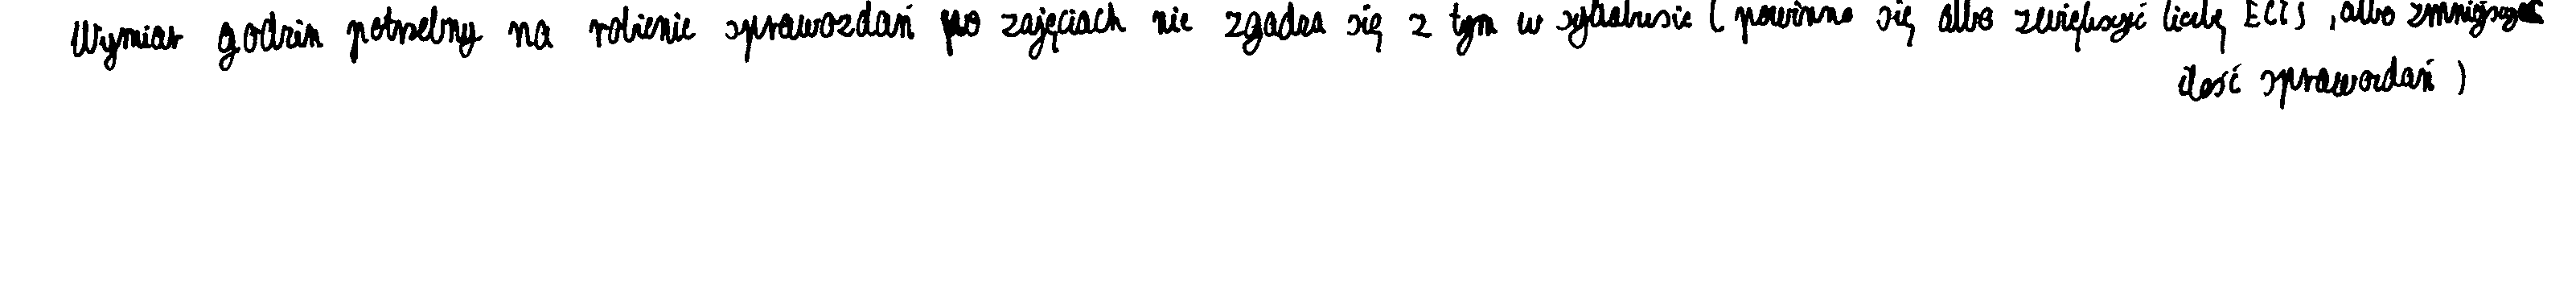 Wymiar godzin potrzebny na robienie sprawozdań po zajęciach nie zgadza się z tym w sylabusie (powinno się albo zwiększyć liczbę ECTS, albo zmniejszyć
ilość sprawozdań)